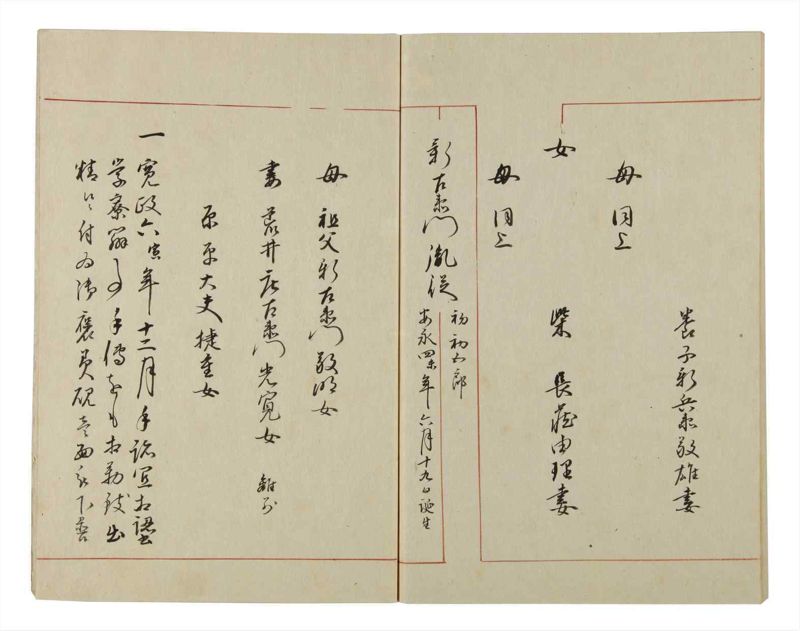 養子新兵衛敬雄妻
母 同上
女
柴 長蔵由理妻
母 同上
新右衛門胤従
初 初五郎
安永四未年六月十九日誕生
母 祖父新右衛門敬明女
妻 荒井庄右衛門光寛女 離別
原平大夫捷重女
一 寛政六寅年十二月手跡宜相認
学寮 手傳をも相勤 出
精 付為御褒美硯 下着